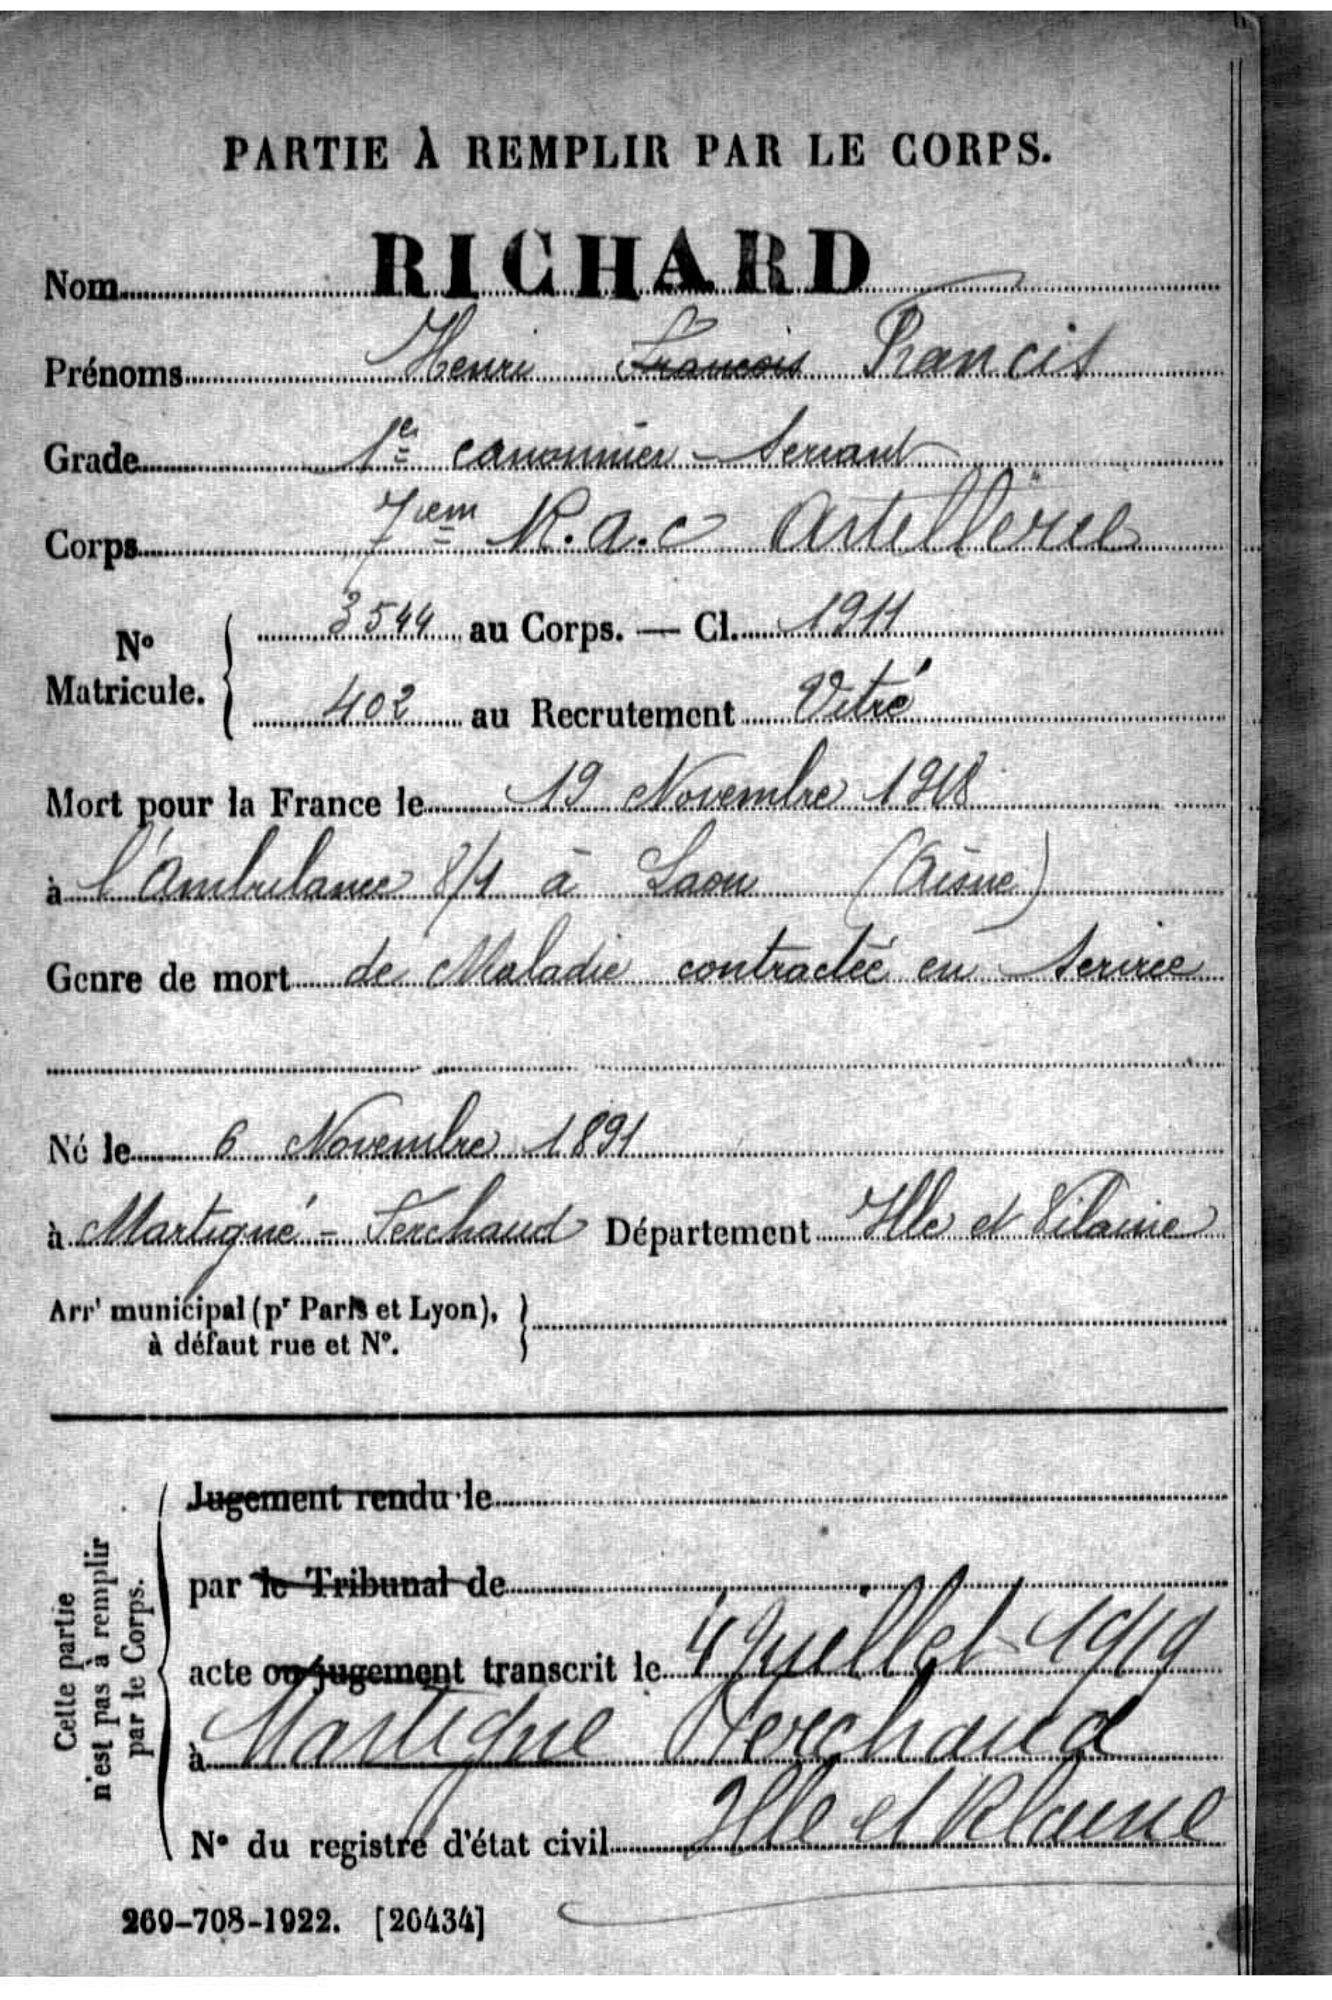 PARTIE À REMPLIR PAR LE CORPS.
Nom RICHARD
Prénoms Henri François Francis
Grade 1er canonnier - Servant
Corps 7iem R.a.c Artellerie
No Matricule. 3544 au Corps. — Cl. 1911
402 au Recrutement Vitré
Mort pour la France le 19 Novembre 1918
à l'Ambulance 8/1 à Laon (Aisne)
Genre de mort de Maladie contractée en Service
Né le 6 Novembre 1891
à Martigné - Ferchaud Département Ille et Vilaine
Arrt municipal (pr Paris et Lyon),
à défaut rue et No.
Cette partie
n'est pas à remplir
par le Corps.
Jugement rendu le
par le Tribunal de
acte ou jugement transcrit le 4 Juillet 1919
à Martigne Ferchaud
No du registre d'état civil Ille et Vilaine
269-708-1922. [26434]